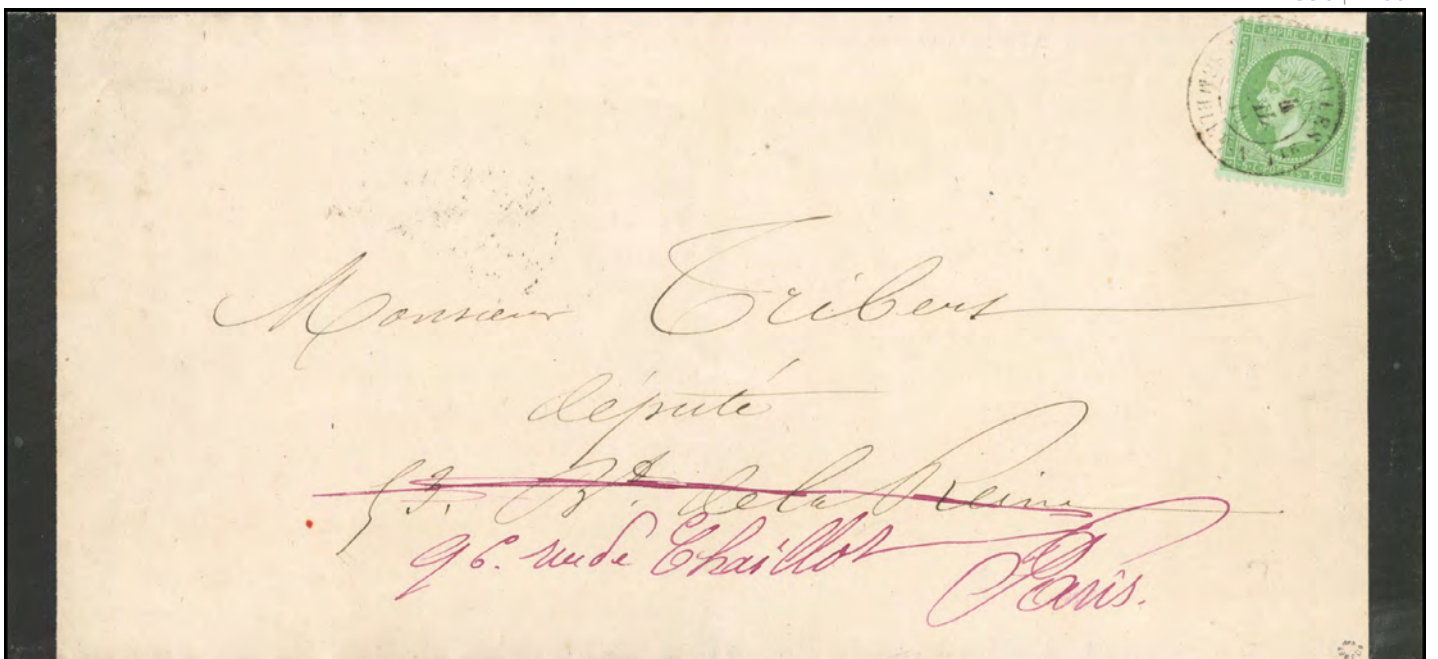 EMPIRE FRANC
5 C 5 C
Monsieur Tribert
député
53. Bd. de la Reine
96. rue de Chaillot
Paris.